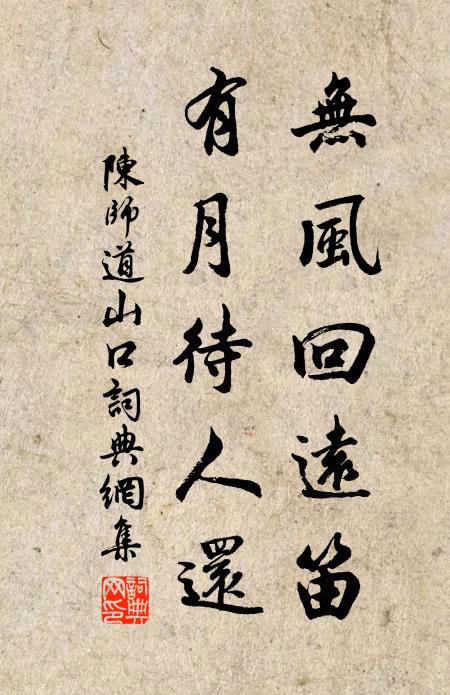 無風回遠笛
有月待人還
陳師道山口詞典網集
詞典網印